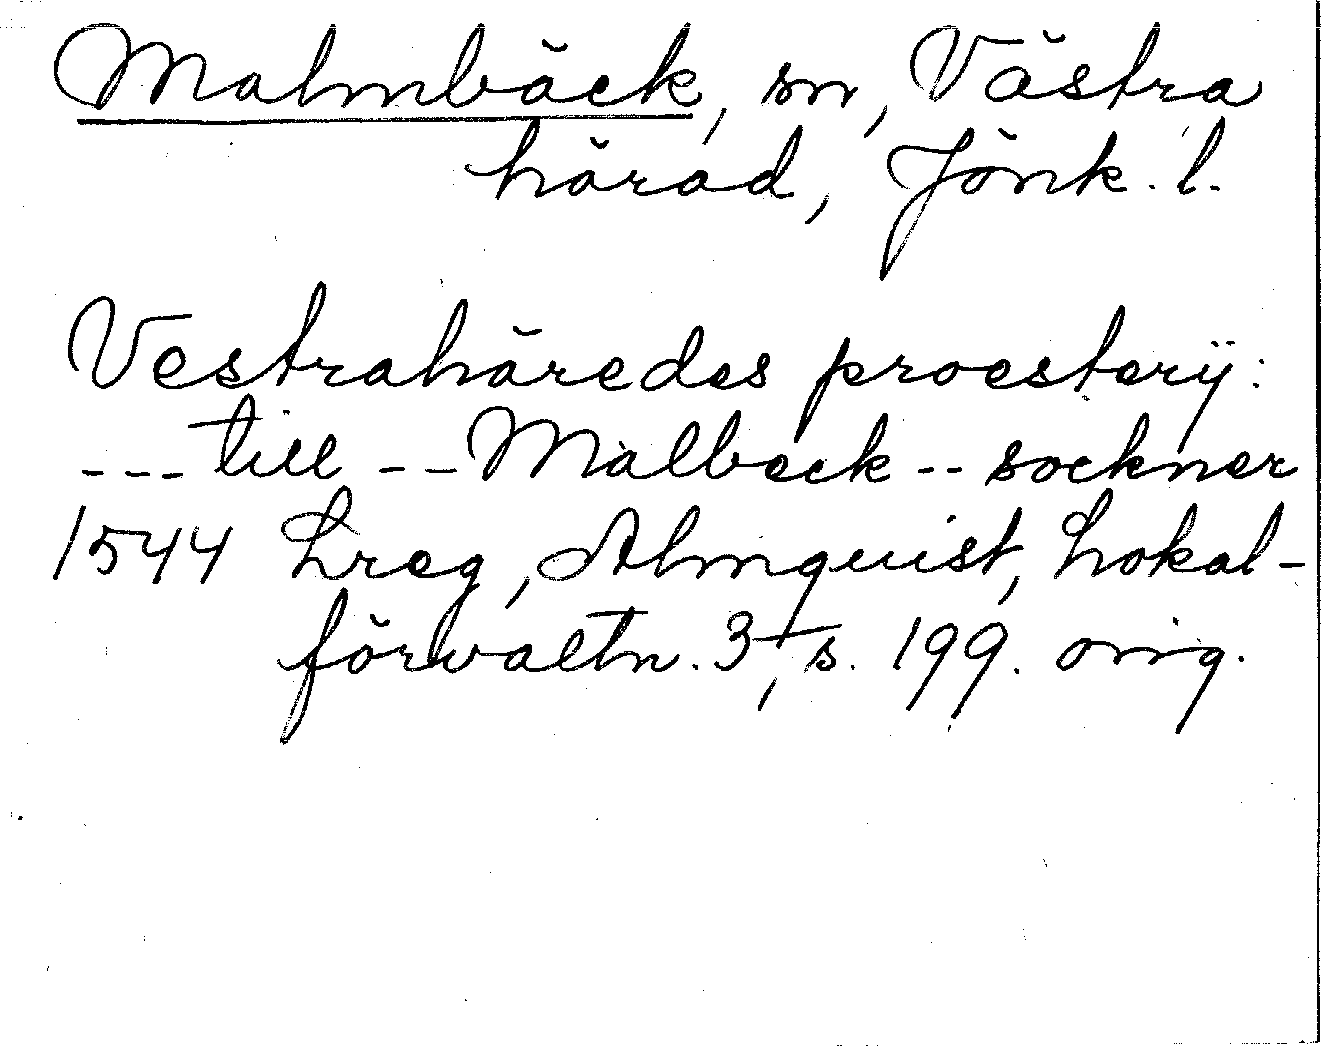 Malmbäck, sn, Västra
härad, Jönk. l.
Vestrahäredes proesterÿ:
--- till -- Malbeck -- sockner
1544 Lreg, Almquist, Lokal-
förvaltn. 3, s. 199. orig.